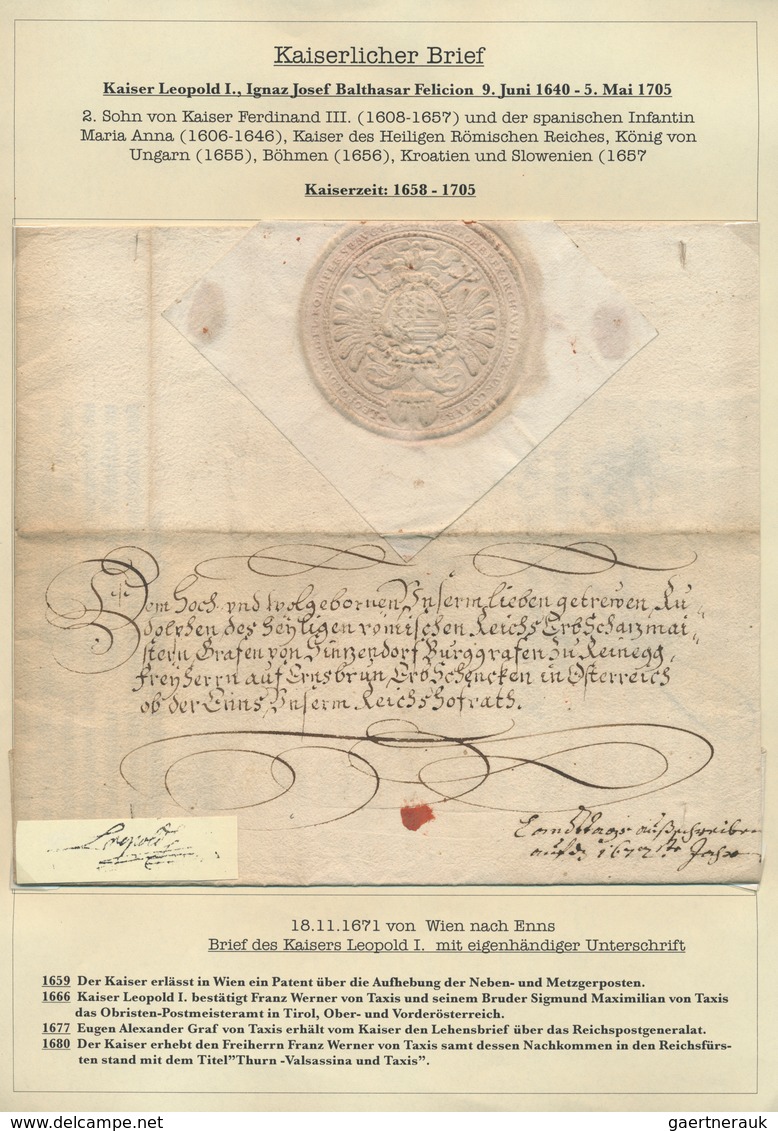 Kaiserlicher Brief
Kaiser Leopold I., Ignaz Josef Balthasar Felicion 9. Juni 1640 - 5. Mai 1705
2. Sohn von Kaiser Ferdinand III. (1608-1657) und der spanischen Infantin
Maria Anna (1606-1646), Kaiser des Heiligen Römischen Reiches, König von
Ungarn (1655), Böhmen (1656), Kroatien und Slowenien (1657
Kaiserzeit: 1658 - 1705
Dem Hoch und Wolgebornen Unserm lieben getrewen, Ru-
dolphen des Heyligen römischen Reichs Erbschazmai-
stern, Grafen von Sinzendorf Burggrafen zu Reinegg,
Freyherrn auf Ernsbrun, Erbschencken in Österreich
ob der Enns, Unserm Reichshofrath.
Leopold
Landttags außschreiben
auf 1672 Jahr
18.11.1671 von Wien nach Enns
Brief des Kaisers Leopold I. mit eigenhändiger Unterschrift
1659 Der Kaiser erlässt in Wien ein Patent über die Aufhebung der Neben- und Metzgerposten.
1666 Kaiser Leopold I. bestätigt Franz Werner von Taxis und seinem Bruder Sigmund Maximilian von Taxis
das Obristen-Postmeisteramt in Tirol, Ober- und Vorderösterreich.
1677 Eugen Alexander Graf von Taxis erhält vom Kaiser den Lehensbrief über das Reichspostgeneralat.
1680 Der Kaiser erhebt den Freiherrn Franz Werner von Taxis samt dessen Nachkommen in den Reichsfürs-
ten stand mit dem Titel”Thurn -Valsassina und Taxis”.
www.delcampe.net
gaertnerauk